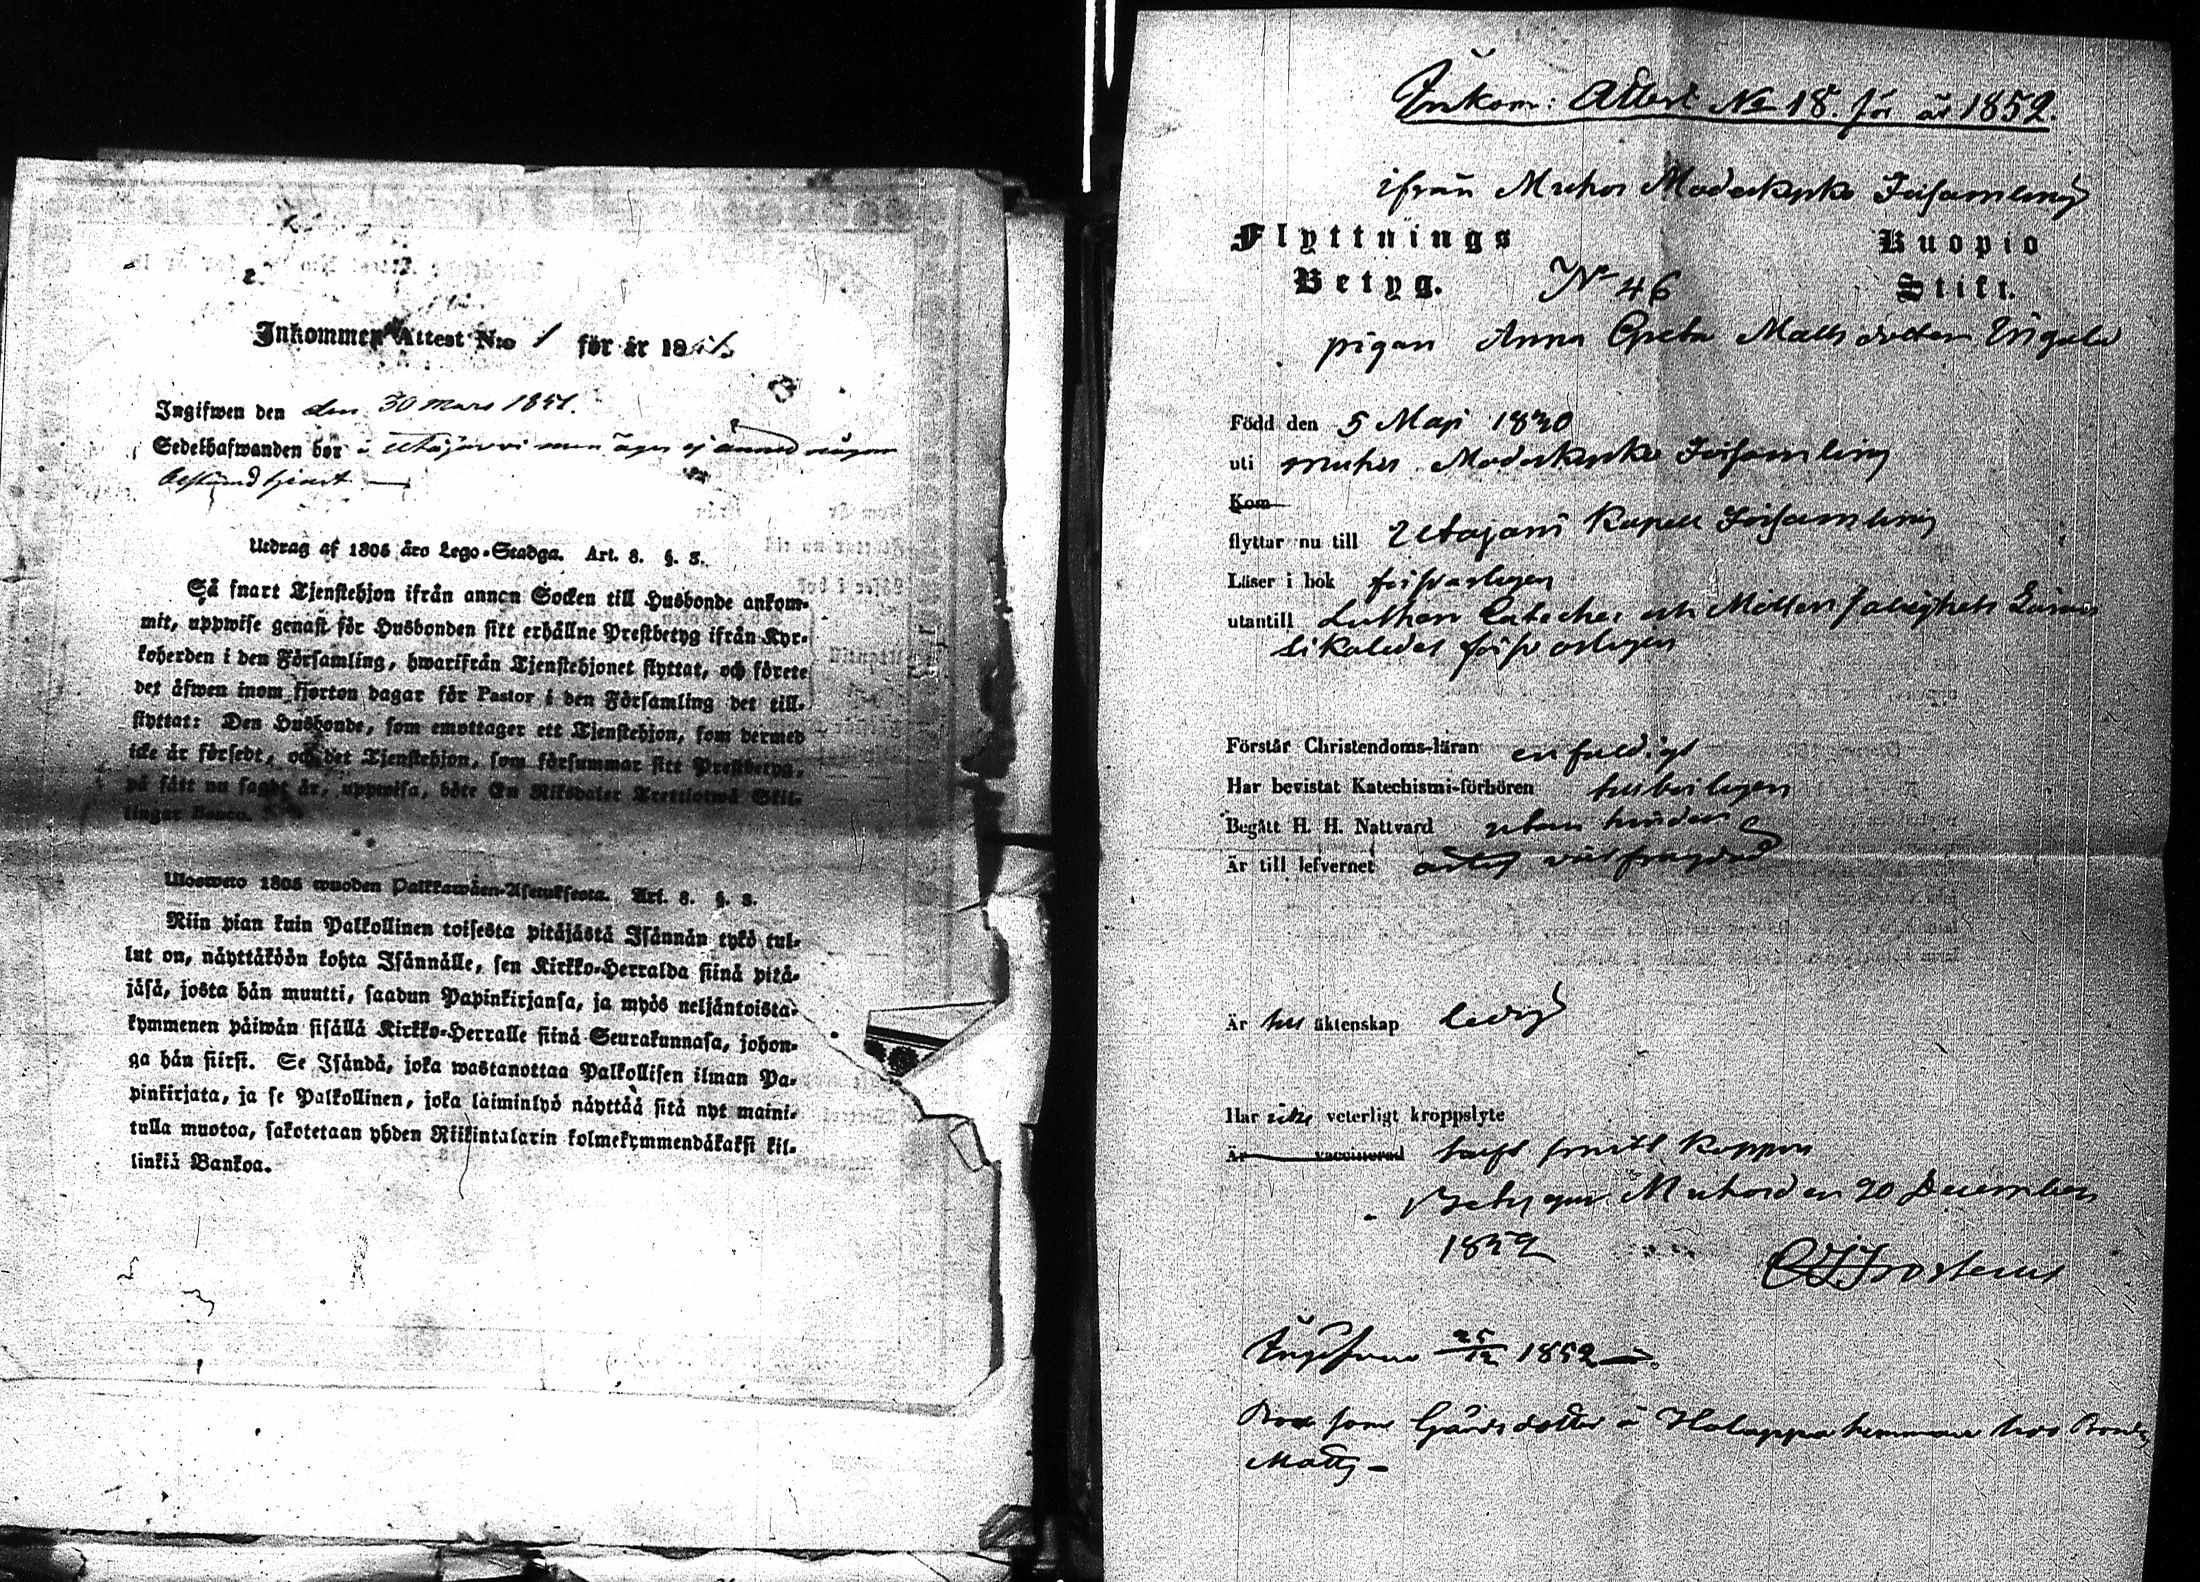 Inkommen Attest N:o 1 för år 1851.
Ingifwen den den 30 Mars 1851.
Sedelhafwanden bor i Utajärvi men äger ej ännu någon
bestämd tjenst —
Utdrag af 1805 års Lego-Stadga. Art. 8. §. 3.
Så snart Tjenstehjon ifrån annen Socken till Husbonde ankom-
mit, uppwise genast för Husbonden sitt erhållne Prestbetyg ifrån Kyr-
koherden i den Församling, hwarifrån Tjenstehjonet flyttat, och förete
det äfwen inom fjorton dagar för Pastor i den Församling det till-
flyttat: Den Husbonde, som emottager ett Tjenstehjon, som dermed
icke är försedt, och det Tjenstehjon, som försummar sitt Prestbetyg,
på sätt nu sagdt är, uppwisa, böte En Riksdaler Trettiotwå Skil-
lingar Banco.
Ulosweto 1805 wuoden Palkkawäen-Asetuksesta. Art. 8. §. 3.
Niin pian kuin Palkollinen toisesta pitäjästä Isännän tykö tul-
lut on, näyttäköön kohta Isännälle, sen Kirkko-Herralda siinä pitä-
jäsä, josta hän muutti, saadun Papinkirjansa, ja myös neljäntoista-
kymmenen päiwän sisällä Kirkko-Herralle siinä Seurakunnasa, johon-
ga hän siirsi. Se Isändä, joka wastanottaa Palkollisen ilman Pa-
pinkirjata, ja se Palkollinen, joka laiminlyö näyttää sitä nyt maini-
tulla muotoa, sakotetaan yhden Riikintalarin kolmekymmendäkaksi kil-
linkiä Bankoa.
Inkom: Attest No 18. för år 1852.
ifrån Muhos Moderkyrko Församling
Flyttnings Kuopio
Betyg. No 46 Stift.
pigan Anna Greta Matts dotter
Född den 5 Maji 1830
uti Muhos Moderkyrko Församling
Kom
flyttar nu till Utajärvi Kapell Församling
Läser i bok försvarligen
utantill Luthers Cateches och
likaledes försvarligen
Förstår Christendoms-läran enfaldigt
Har bevistat Katechismi-förhören behörigen
Begått H. H. Nattvard utan hinder
Är till lefvernet välfrejdad
Är till äktenskap ledig
Har icke veterligt kroppslyte
Är vaccinerad haft smitt koppor
Betygar Muhos den 20 December
1852
Frosterus
Ingifven 25/12 1852 —
Bor som Gårdsdotter å Holappa hemman hos Bonden
Matts —